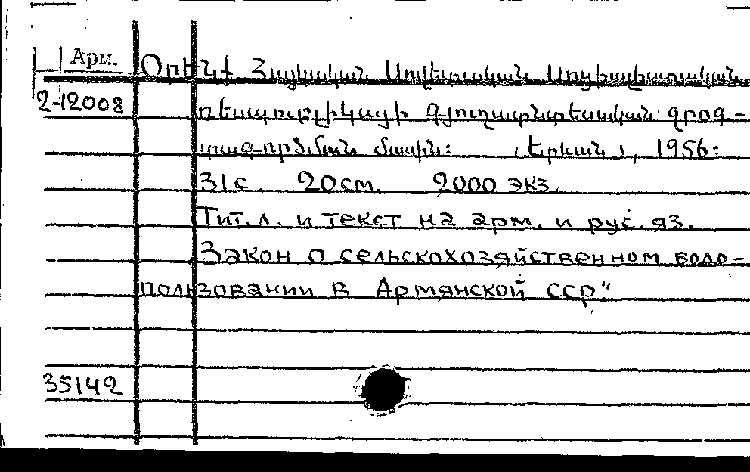 Арм.
Օրենք Հայկական Սովետական Սոցիալիստական
2-12008
Ռեսպուբլիկայի գյուղատնտեսական ջրօգ-
տագործման մասին: Երևան, 1956:
31с. 20см. 2000 экз.
Тит. л. и текст на арм. и рус. яз.
Закон о сельскохозяйственном водо-
пользовании в Армянской ССР"
35142